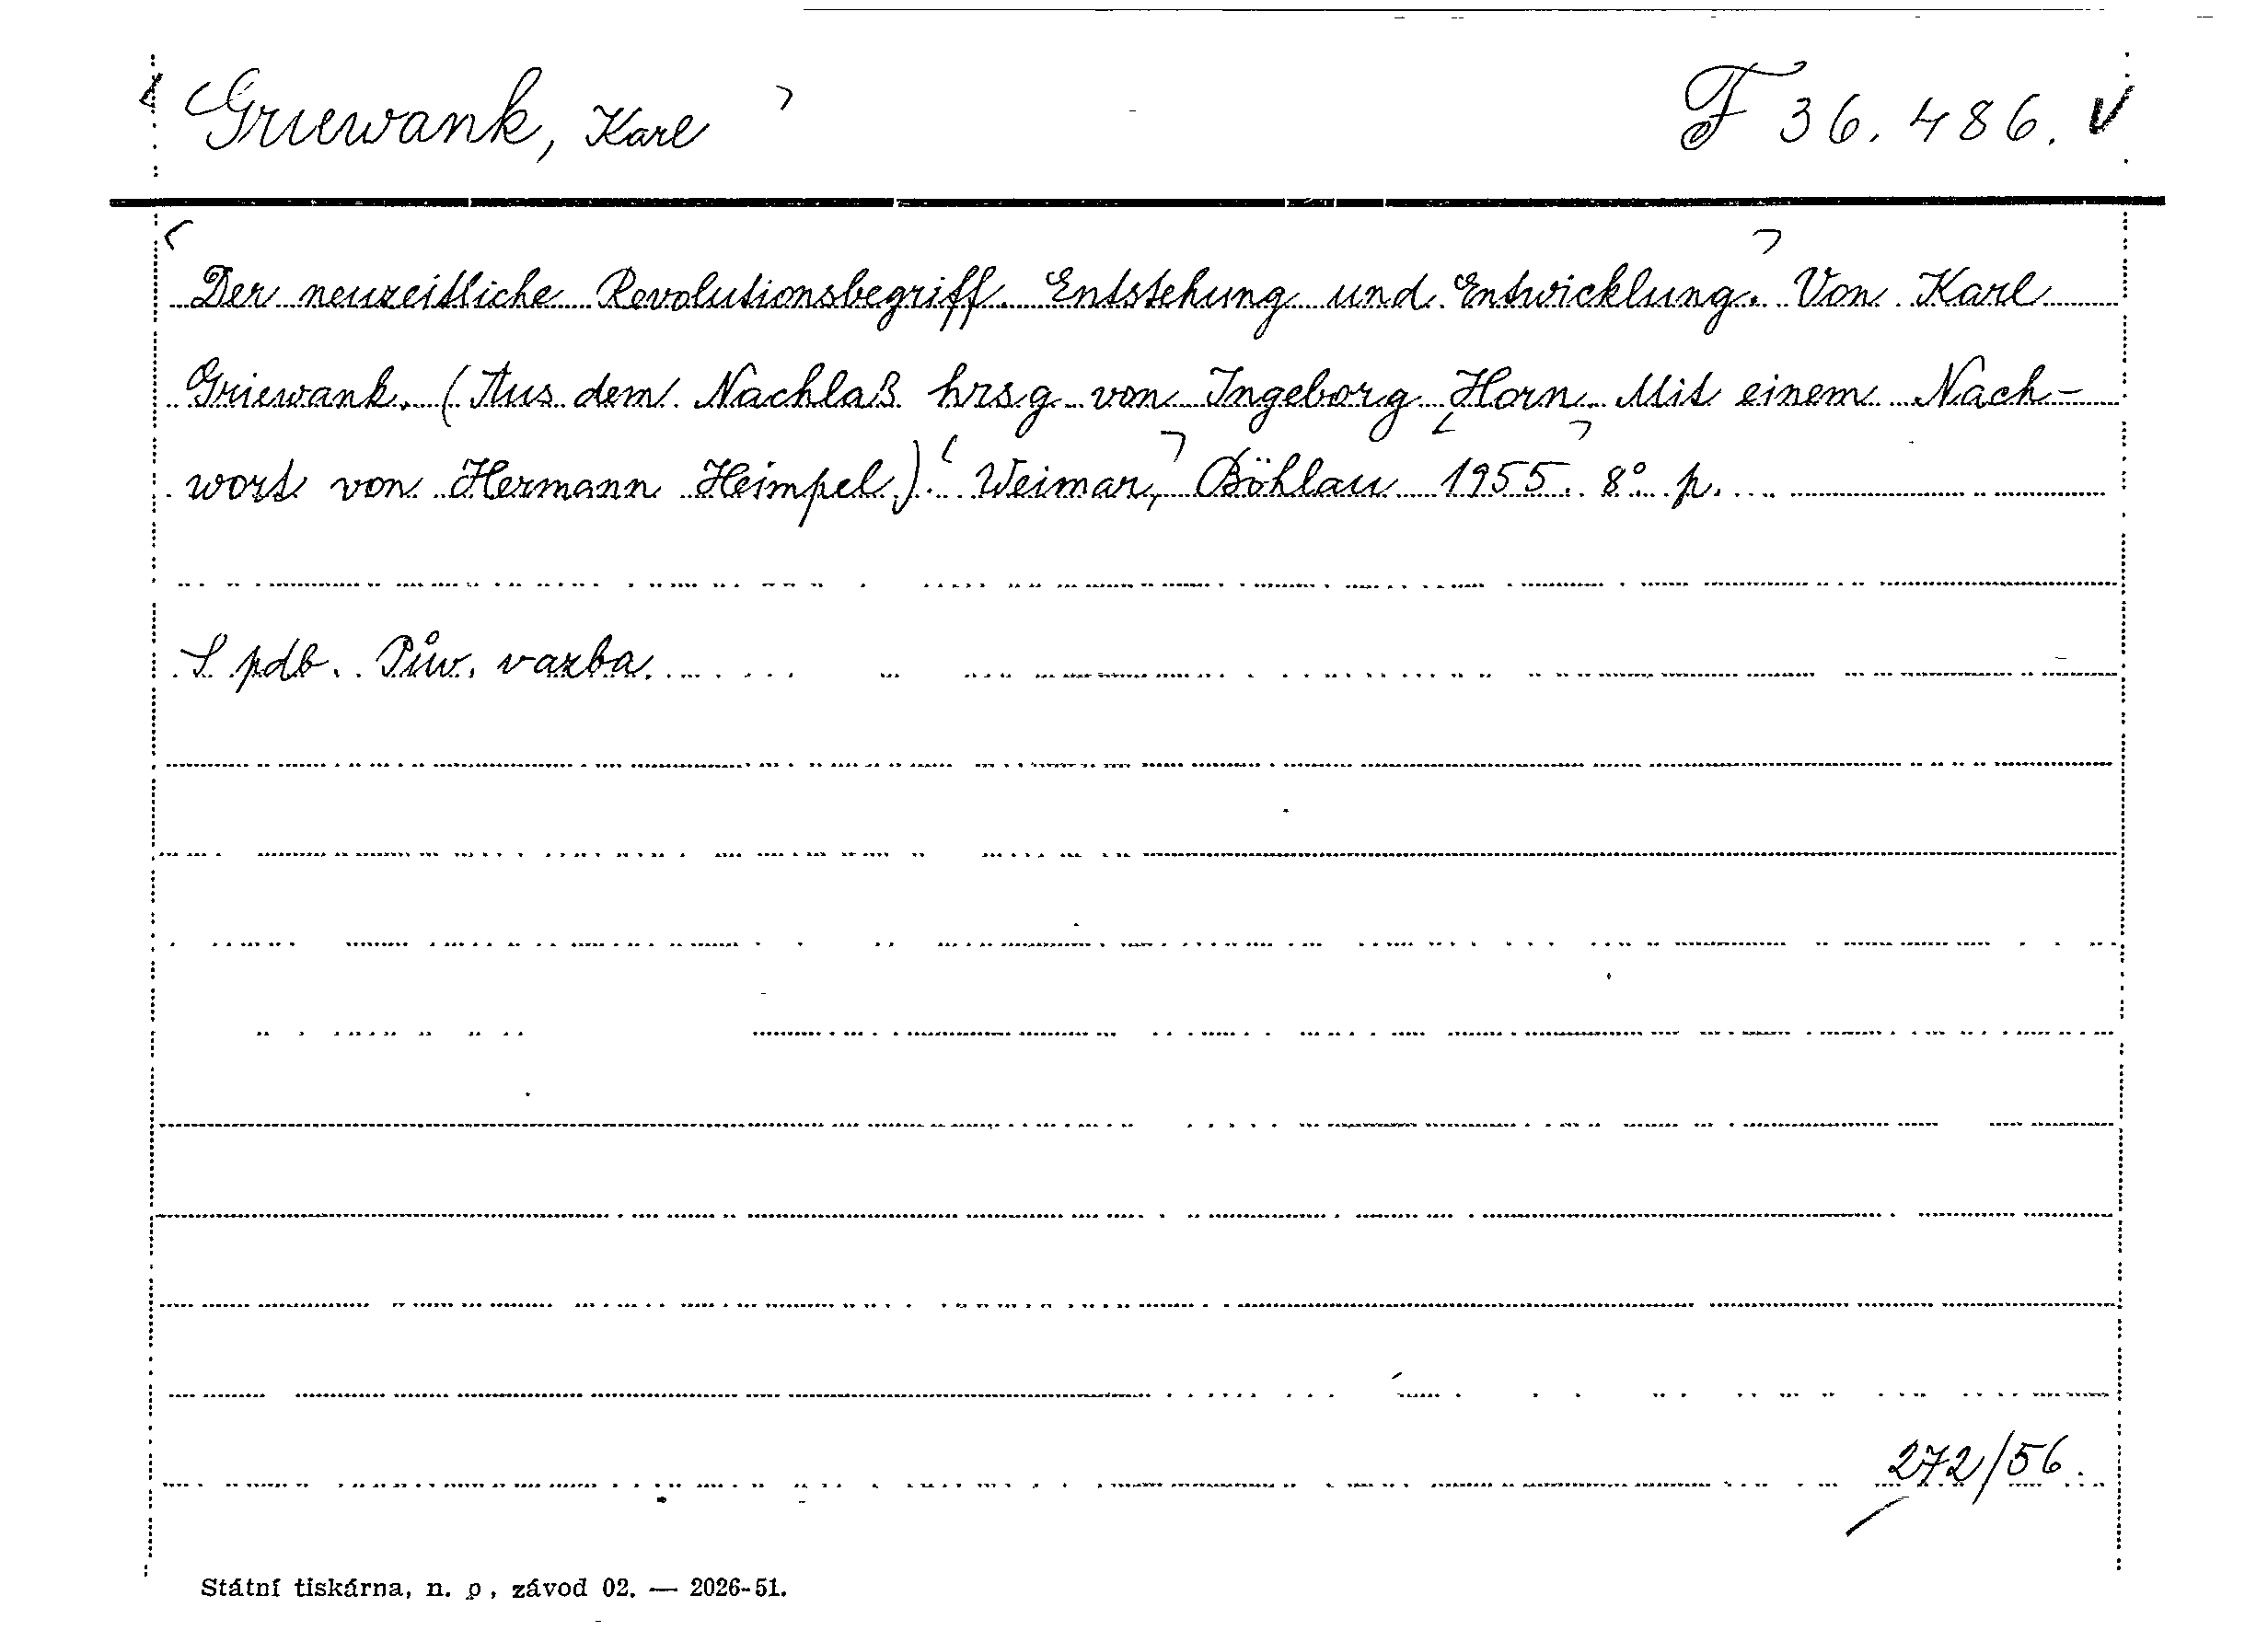 Griewank, Karl F 36.486. V
Der neuzeitliche Revolutionsbegriff. Entstehung und Entwicklung. Von Karl
Griewank. (Aus dem Nachlaß hrsg von Ingeborg Horn Mit einem Nach-
wort von Hermann Heimpel.) Weimar, Böhlau 1955. 8° p.
S pdb. Pův. vazba.
272/56.
Státní tiskárna, n. p, závod 02. — 2026-51.